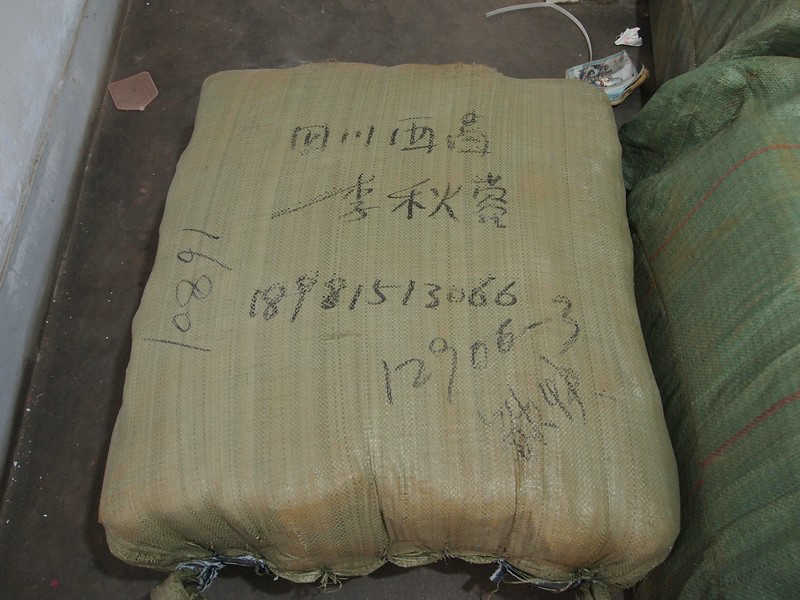 四川西昌
李秋莹
18981513066
12906-3
10891